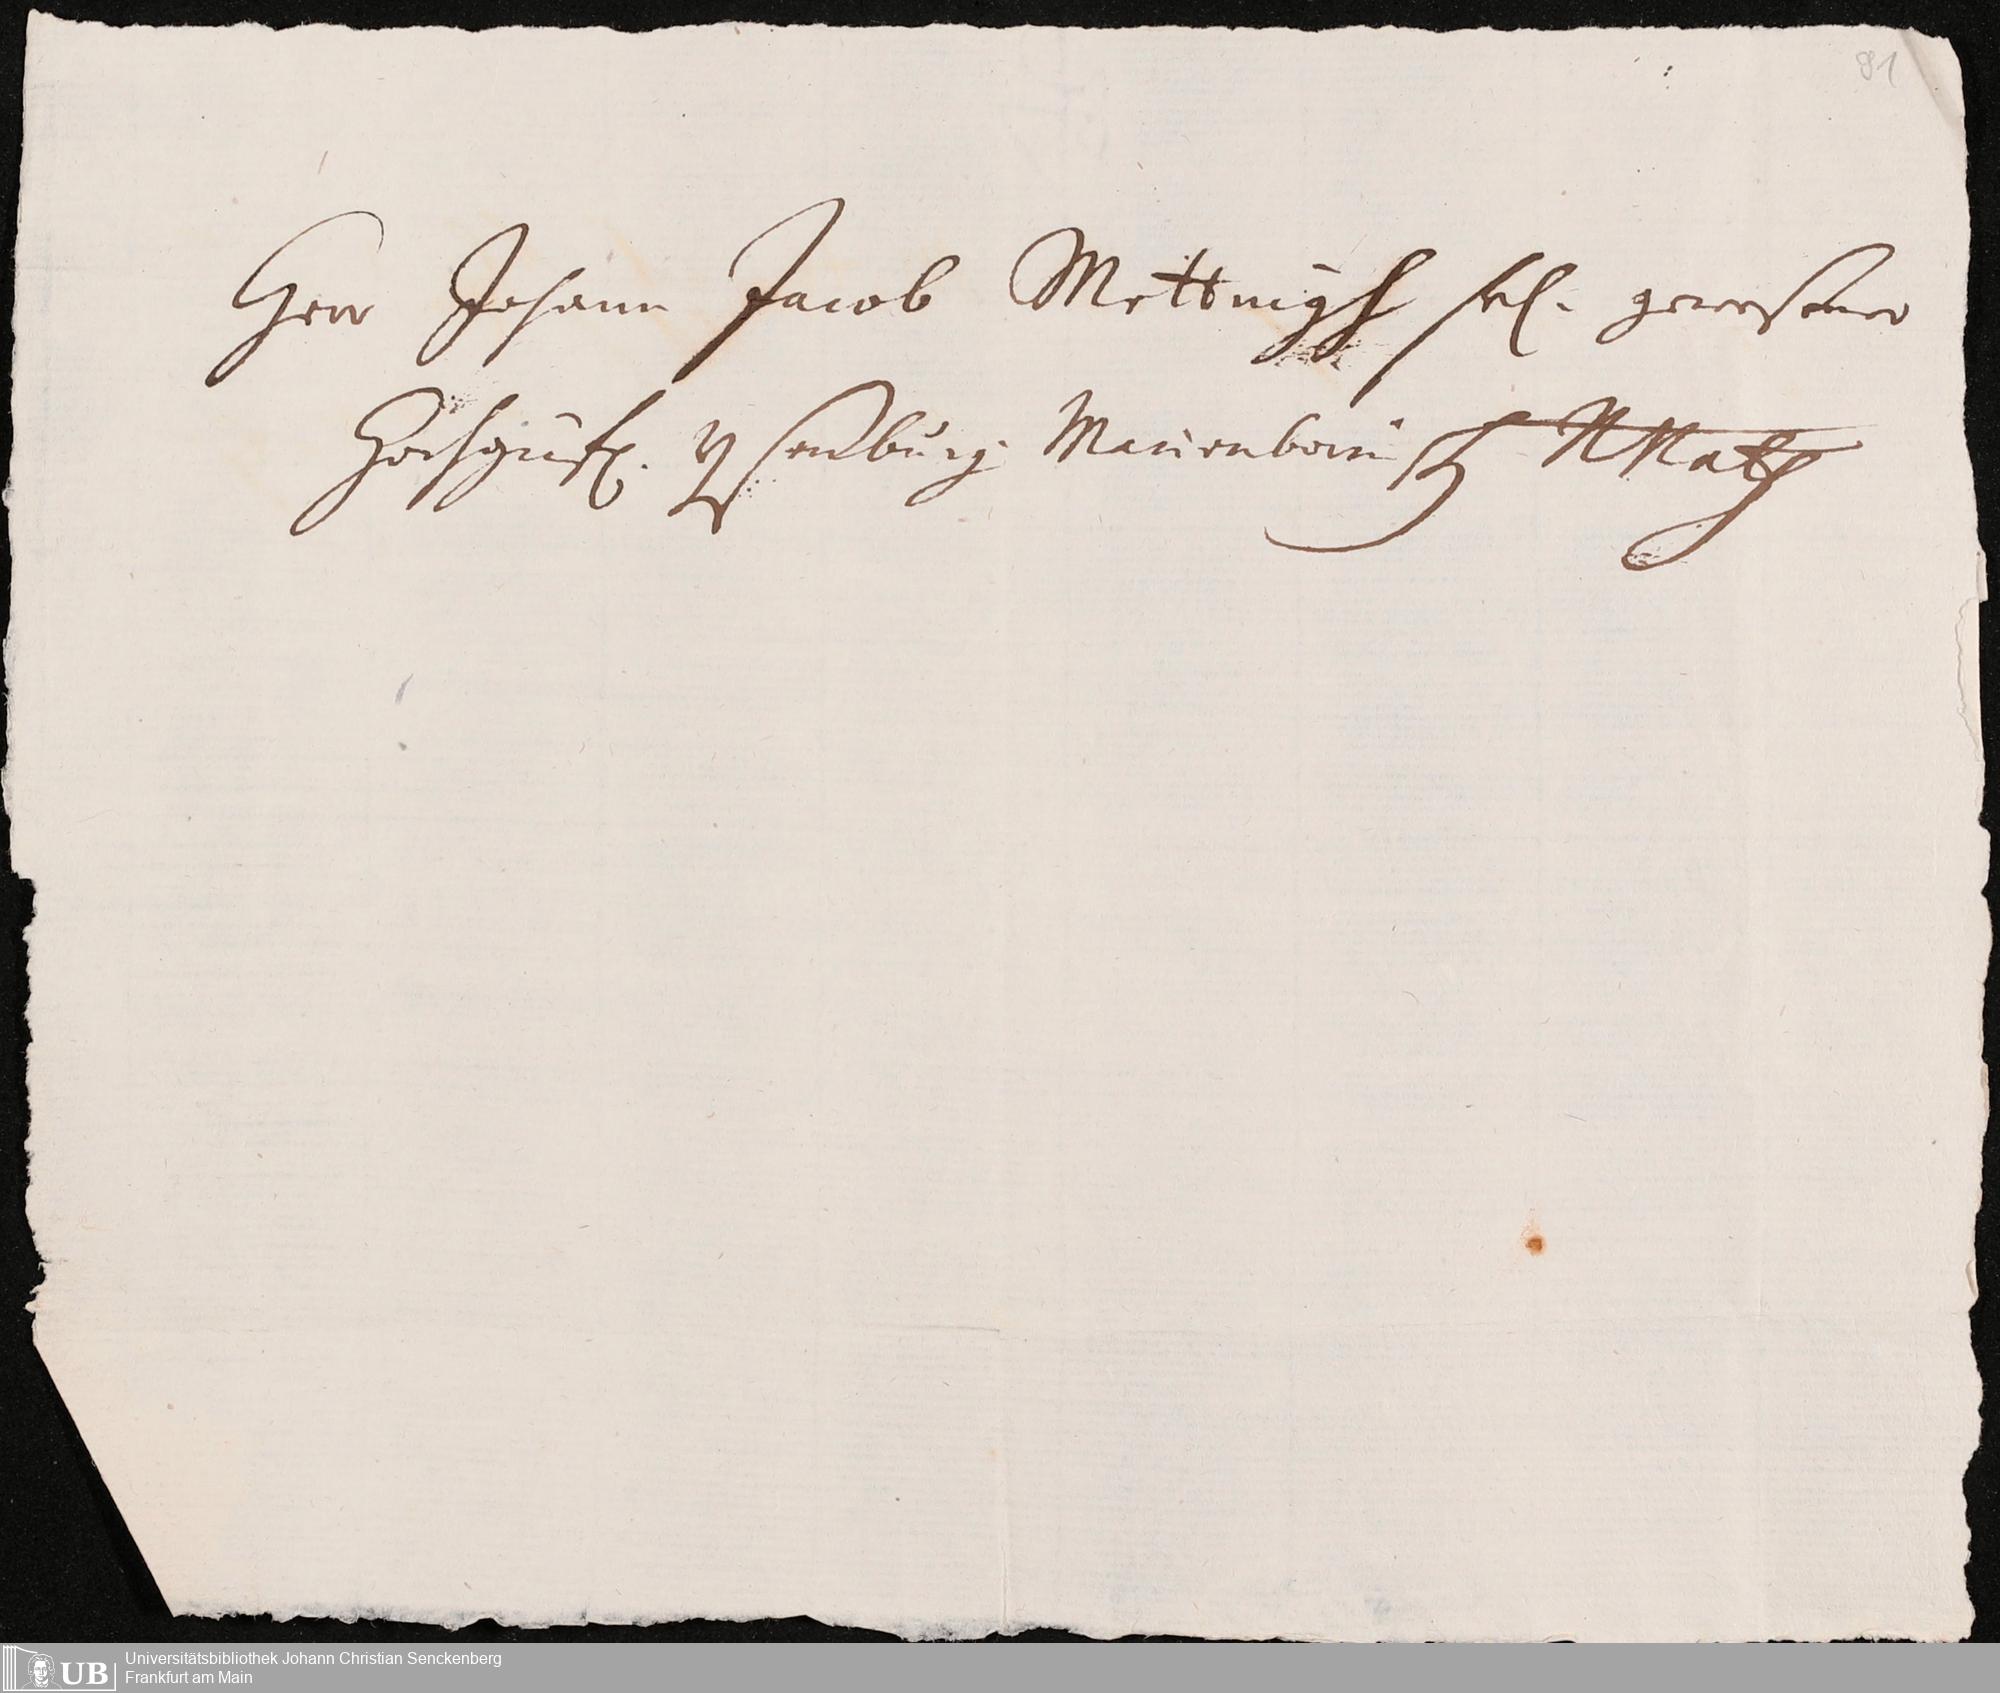 81
Herr Johann Jacob Mettnigh sel. gewesener
Hochgräfl. Ysenburg Marienbornisch Rath
UB Universitätsbibliothek Johann Christian Senckenberg
Frankfurt am Main